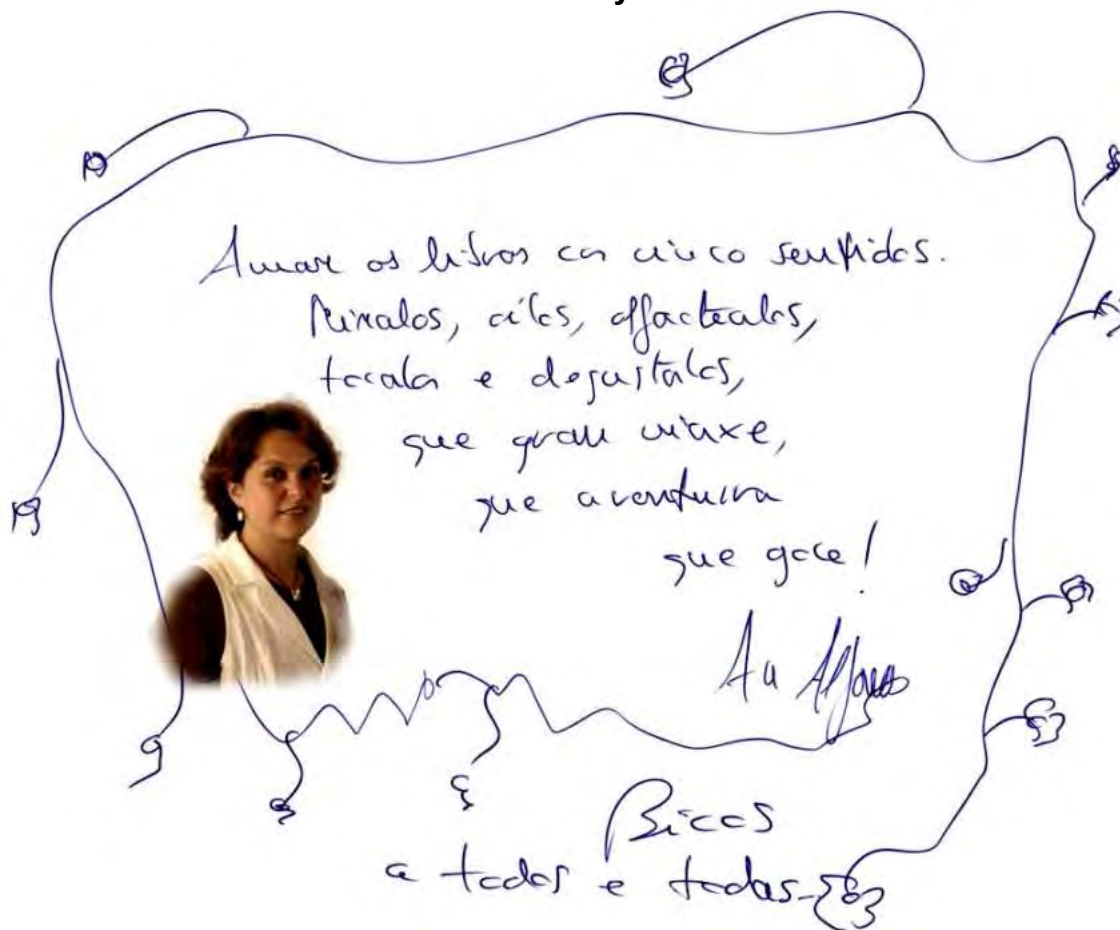 Amar os libros cos cinco sentidos.
Miralos, oílos, olfactealos,
tocalos e degustalos,
que gran viaxe,
que aventura
que goce!
An Alfaya
Bicos
a todos e todas